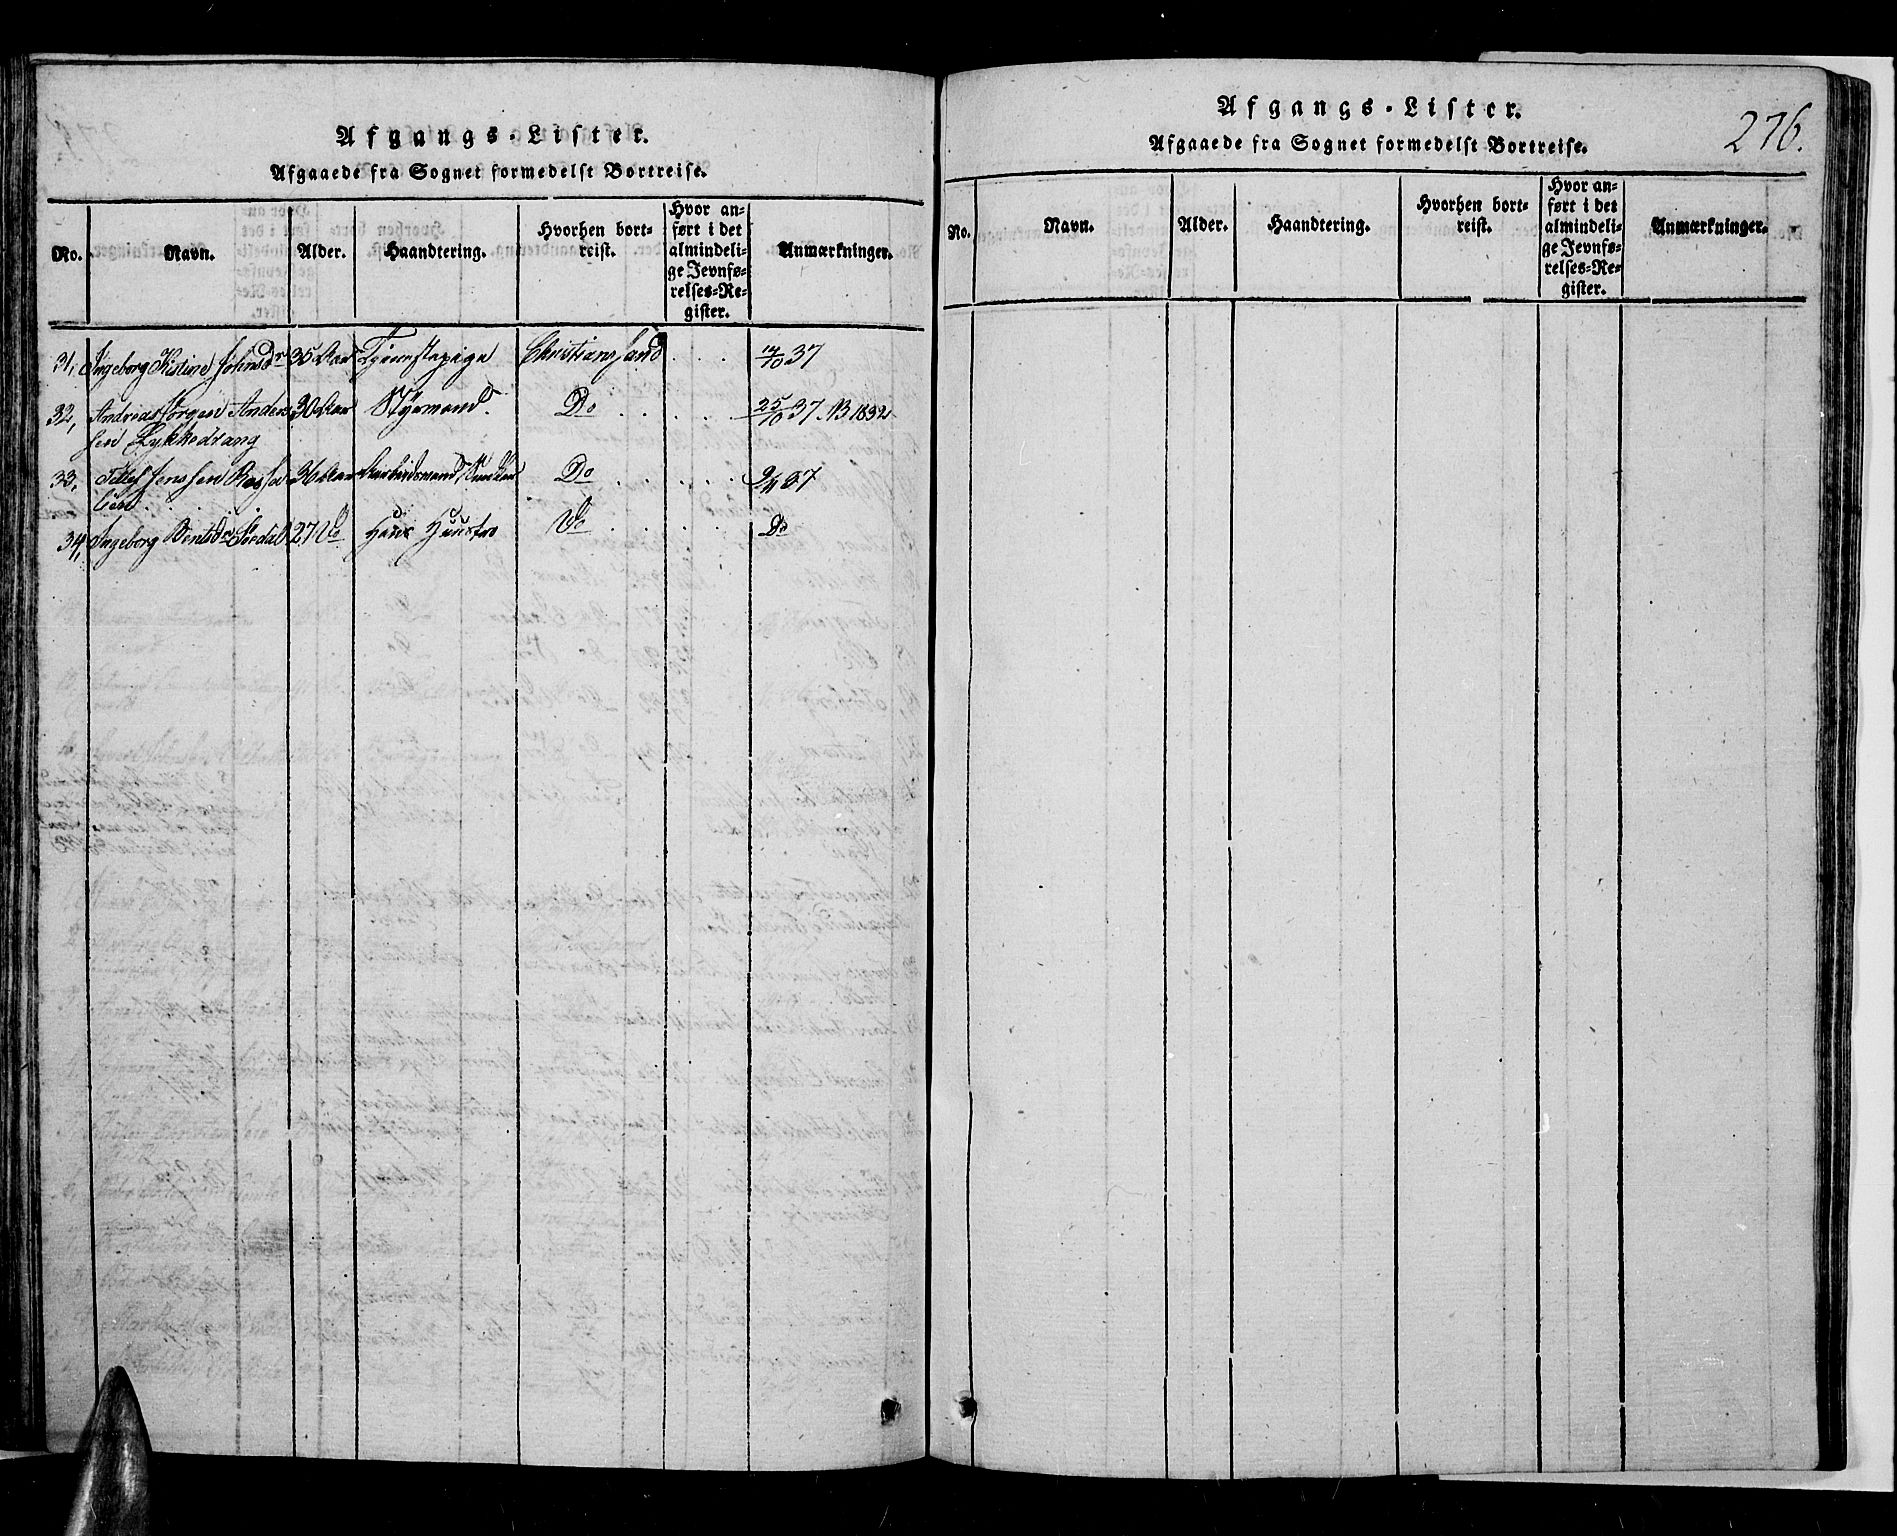 Afgangs-Lister.
Afgaaede fra Sognet formedelst Bortreise.
No. Navn. Alder. Haandtering. Hvorhen bort-
reist. Hvor an-
ført i det
almindeli-
ge Jevnfø-
relses-Re-
gister. Anmærkninger.
31, Ingeborg Kistine Johnsdr 35 Aar Tjenestepige Christiansand . . . 14/10 37
32, Andreas Jørgen Ander 30 Aar Styrmand. Do . . . . . 25/10 37. B 1832
sen Lykkedrang
33, Tellef Jenssen 36 Aar Do . . . . . . 37
34, Ingeborg Bentsdr 27 Do Hans Huustro Do . . . . Do
Afgangs-Lister.
276.
Afgaaede fra Sognet formedelst Bortreise.
No. Navn. Alder. Haandtering. Hvorhen bort-
reist. Hvor an-
ført i det
almindeli-
ge Jevnfø-
relses-Re-
gister. Anmærkninger.